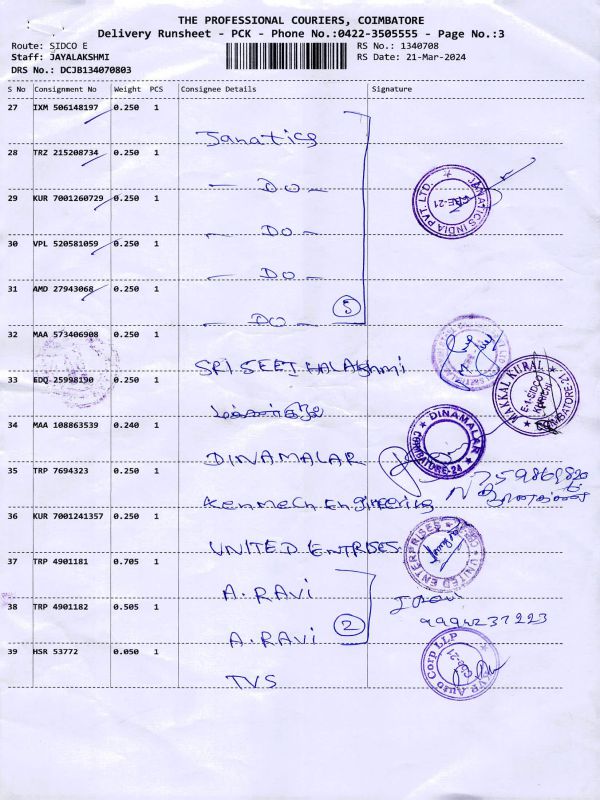 THE PROFESSIONAL COURIERS, COIMBATORE
Delivery Runsheet - PCK - Phone No.:0422-3505555 - Page No.:3
Route: SIDCO E
RS No.: 1340708
Staff: JAYALAKSHMI
RS Date: 21-Mar-2024
DRS No.: DCJB134070803
S No Consignment No Weight PCS Consignee Details Signature
27 IXM 506148197 0.250 1
Janatics
28 TRZ 215208734 0.250 1
— DO —
29 KUR 7001260729 0.250 1
— DO —
30 VPL 520581059 0.250 1
— DO —
31 AMD 27943068 0.250 1
— DO —
5
JANATICS INDIA PVT. LTD.
CBE-21
32 MAA 573406908 0.250 1
SRI SEETHALAKshmi
33 EDQ 25998190 0.250 1
MAKKAL KURAL
COIMBATORE-21
34 MAA 108863539 0.240 1
DINAMALAR
DINAMALAR
COIMBATORE-24
35 TRP 7694323 0.250 1
Kenmech Engineering
36 KUR 7001241357 0.250 1
UNITED ENTRISES
UNITED ENTERPRISES
37 TRP 4901181 0.705 1
A. RAVi
38 TRP 4901182 0.505 1
A. RAVi
2
9994237223
39 HSR 53772 0.050 1
TVS
Auto Corp LLP